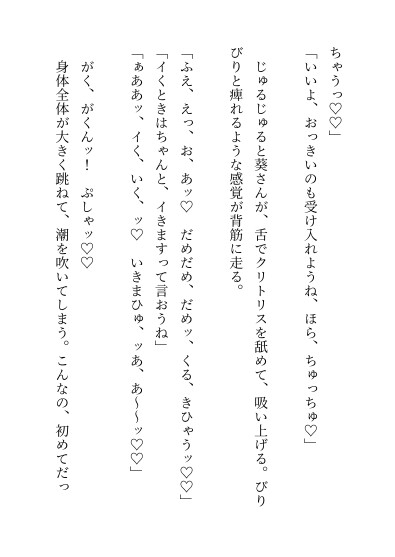 ちゃうっ♡♡」
「いいよ、おっきいのも受け入れようね、ほら、ちゅっちゅ♡」
　じゅるじゅると葵さんが、舌でクリトリスを舐めて、吸い上げる。びり
びりと痺れるような感覚が背筋に走る。
「ふえ、えっ、お、あッ♡　だめだめ、だめッ、くる、きひゃうッ♡♡」
「イくときはちゃんと、イきますって言おうね」
「ぁああッ、イく、いく、ッ♡　いきまひゅ、ッあ、あ〜〜ッ♡♡」
　がく、がくんッ！　ぷしゃッ♡♡
　身体全体が大きく跳ねて、潮を吹いてしまう。こんなの、初めてだっ